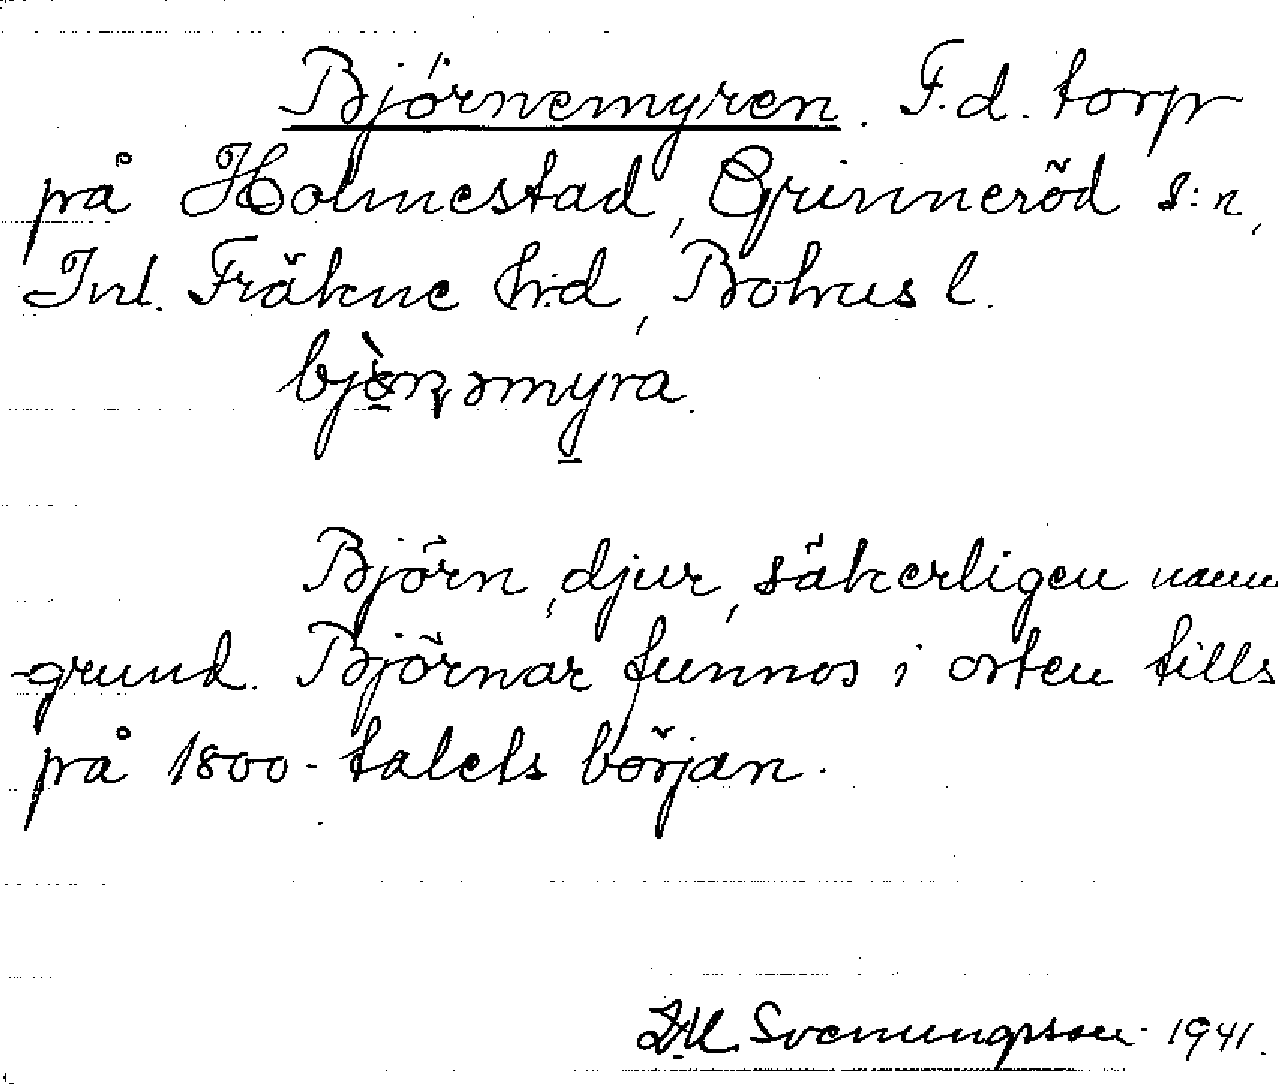 Björnemyren. F.d. torp
på Holmestad, Grinneröd s:n,
Inl. Fräkne h:d, Bohusl.
Björn, djur, säkerligen namn
-grund. Björnar funnos i orten tills
på 1800-talets början.
Svenungsson 1941.